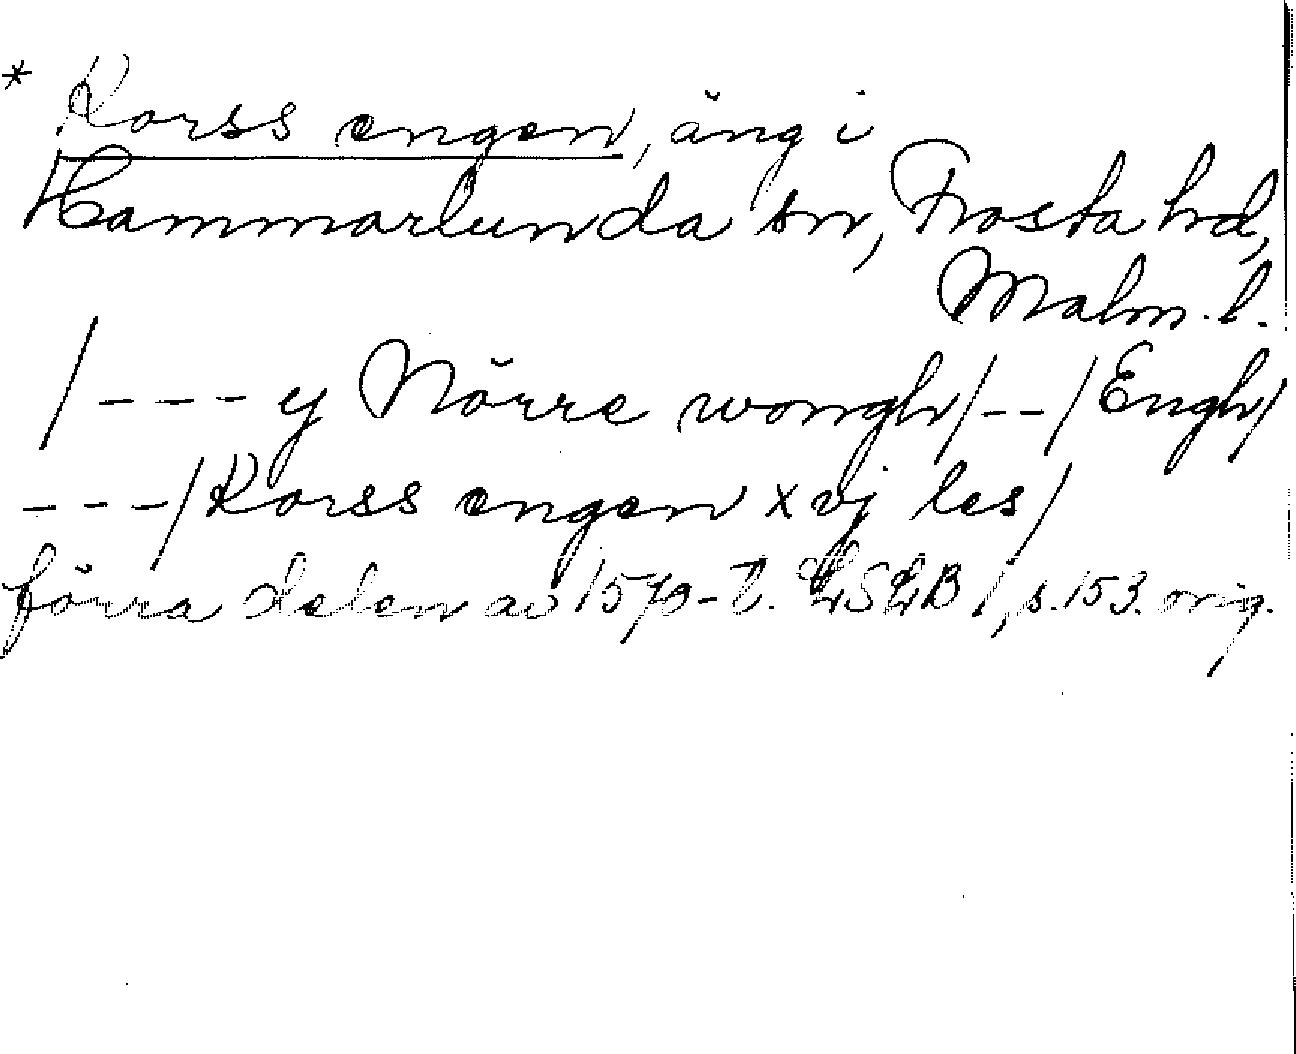 * Korss engen, äng i
Hammarlunda sn, Frosta hd,
Malm. l.
/--- y Nörre wongh/--/Engh/
---/Korss engen xvj les/
förra delen av 1570-t. LSLB 1, s. 153. orig.